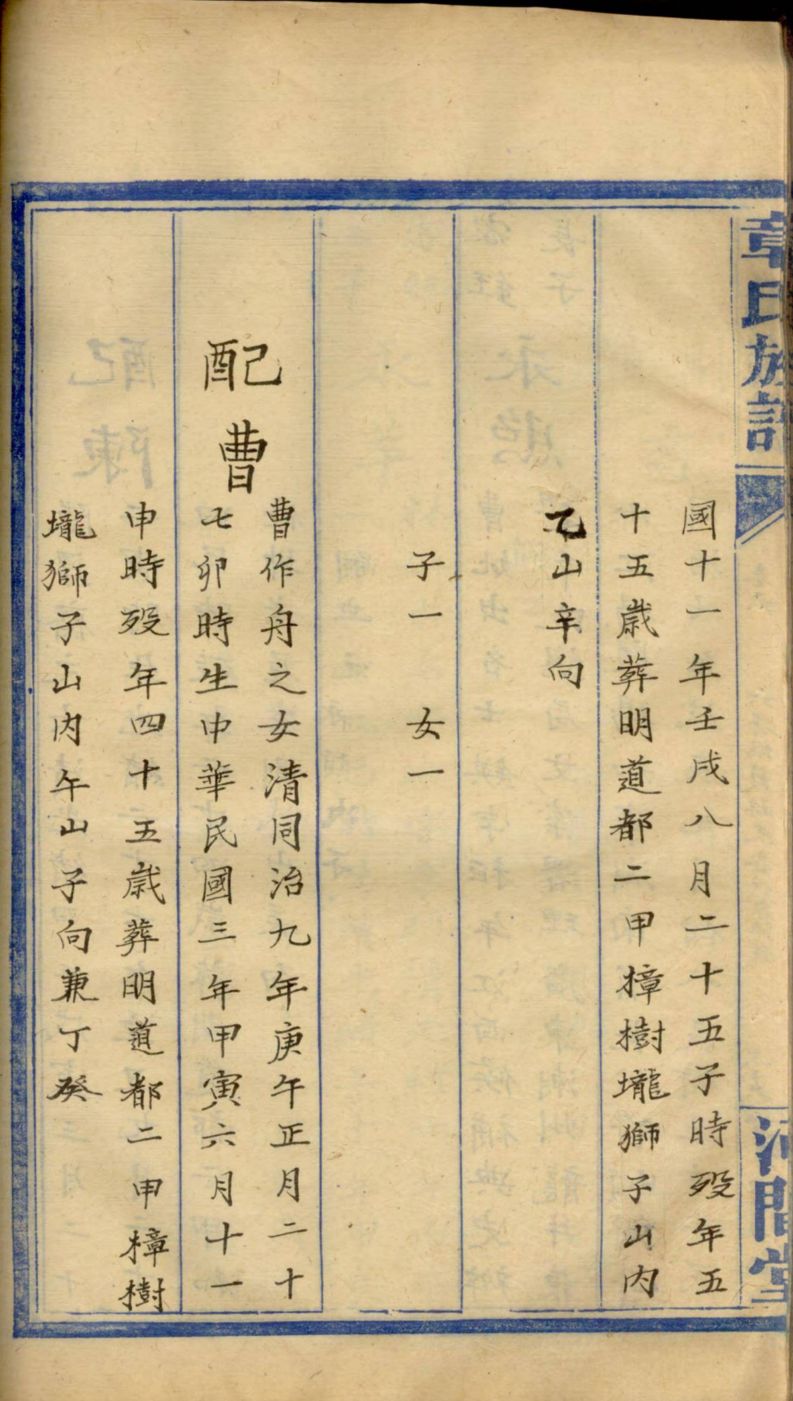 章氏族譜
河間堂
國十一年壬戌八月二十五子時歿年五
十五歲葬明道都二甲樟樹壠獅子山內
乙山辛向
子一 女一
配曹
曹作舟之女清同治九年庚午正月二十
七卯時生中華民國三年甲寅六月十一
申時歿年四十五歲葬明道都二甲樟樹
壠獅子山內午山子向兼丁癸